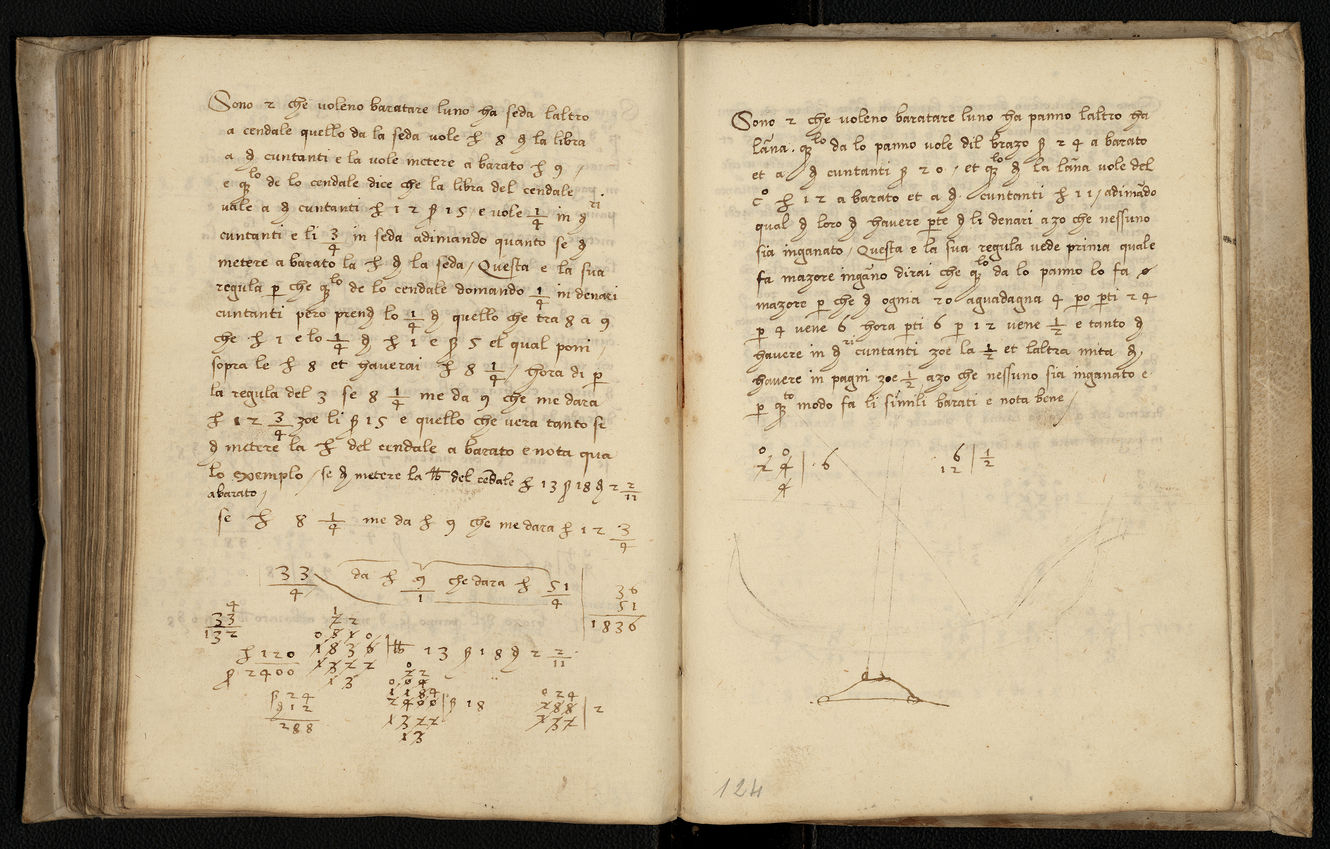 Sono 2 che voleno baratare luno ha seda laltro
a cendale quello da la seda vole ₶ 8 ꝺ la libra
a ꝺ cuntanti e la vole metere a barato ₶ 9 /
e q̃lo de lo cendale dice che la libra del cendale
vale a ꝺ cuntanti ₶ 12 ꞵ 15 e vole 1/4 in ꝺri
cuntanti e li 3/4 in seda adimando quanto se ꝺ
metere a barato la ₶ ꝺ la seda / Questa e la sua
regula ꝑ che q̃lo de lo cendale domando 1/4 in denari
cuntanti pero prendi lo 1/4 ꝺ quello che tra 8 a 9
che ₶ 1 e lo 1/4 ꝺ ₶ 1 e ꞵ 5 el qual poni /
sopra le ₶ 8 et haverai ₶ 8 1/4 / hora di ꝑ
la regula del 3 se 8 1/4 me da 9 che me dara
₶ 12 3/4 zoe li ꞵ 15 e quello che vera tanto se
ꝺ metere la ₶ del cendale a barato e nota qua
lo exemplo / se ꝺ metere la ℔ del cẽdale ₶ 13 ꞵ 18 ꝺ 2 2/11
abarato /
se ₶ 8 1/4 me da ₶ 9 che me dara ₶ 12 3/4
33/4 da ₶ 9/1 che dara ₶ 51/4
36
51
1836
4
33
132
1
2 2
0 8 1 0
1836 ℔ 13 ꞵ 18 ꝺ 2 2/11
1322
13
₶ 120
ꞵ 2400
ꞵ 24
ꝺ 12
288
0
22
004
1184
2400 ꞵ 18
1322
13
024
288 2
132
Sono 2 che voleno baratare luno ha panno laltro ha
lãna . q̃lo da lo panno vole dil brazo ꞵ 24 a barato
et a ꝺ cuntanti ꞵ 20 / et q̃lo ꝺ la lãna vole del
co ₶ 12 a barato et a ꝺ cuntanti ₶ 11 / adimãdo
qual ꝺ loro ꝺ havere ꝑte ꝺ li denari azo che nessuno
sia inganato / Questa e la sua regula vede prima quale
fa mazore ingãno dirai che q̃lo da lo panno lo fa
mazore ꝑ che ꝺ ognia 20 aguadagna 4 po ꝑti 24
ꝑ 4 vene 6 hora ꝑti 6 ꝑ 12 vene 1/2 e tanto ꝺ
havere in ꝺri cuntanti zoe la 1/2 et laltra mita ꝺ
havere in pagni zoe 1/2 azo che nessuno sia inganato e
ꝑ q̃to modo fa li simili barati e nota bene /
0 0
2 4 6
4
6 1/2
12
124